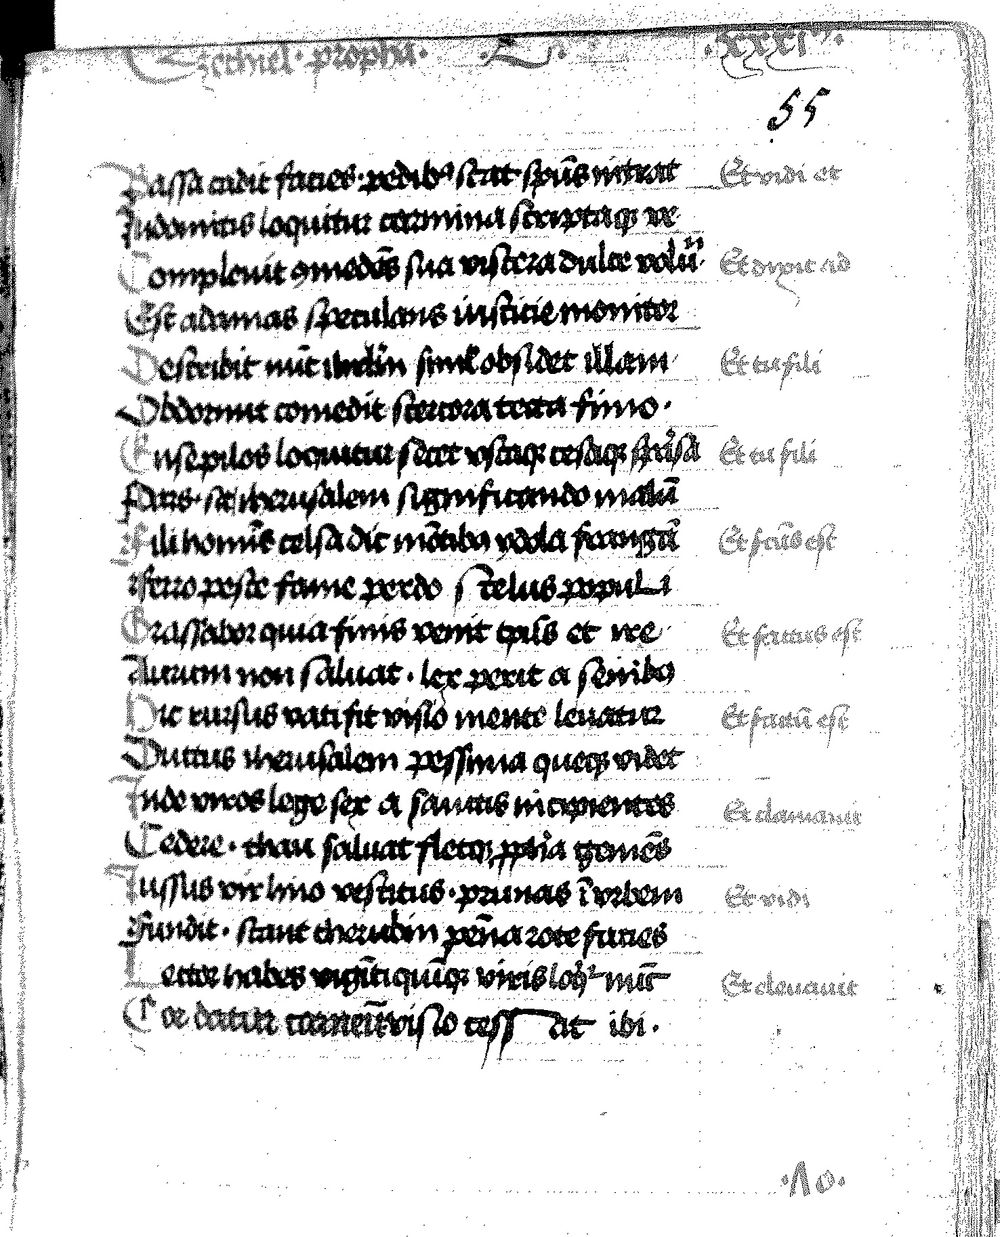 Ezechiel · propha · L · XXXI
55
Bassa cadit facies · pedib9 stat · spūs intrat Et vidi et
Indomitis loquitur carmina scriptaqꝫ ve
Compleuit 9medēs sua viscera dulce volū Et dixit ad
Est adamas speculans iusticie monitor
Describit nūc simul obsidet illam Et tu fili
Obdormit comedit stercora tecta fimo ·
Ense pilos loquitur secat vstaqꝫ cesaqꝫ Et tu fili
Pars · iherusalem significando malū
Fili homīs celsa dic mōtiba ydola frangā Et fcūs est
Ferro peste fame perdo scelus populi
Grassabor quia finis venit tpūs et ire Et factus est
Aurum non saluat · lex perit a senib9
Hic rursus vati fit visio mente leuatur Et factū est
Ductus iherusalem pessima queqꝫ videt
Inde viros lege sex a sanctis incipientes Et clamauit
Cedere · thau saluat fletqꝫ ppha gemēs
Iussus vir lino vestitus · prunas ī vrbem Et vidi
Fundit · stant cherubin pēna rote facies
Lector habes vigīti quīqꝫ viris nūc Et eleuauit
Cor datur carneū visio cessat ibi ·
· 10 ·